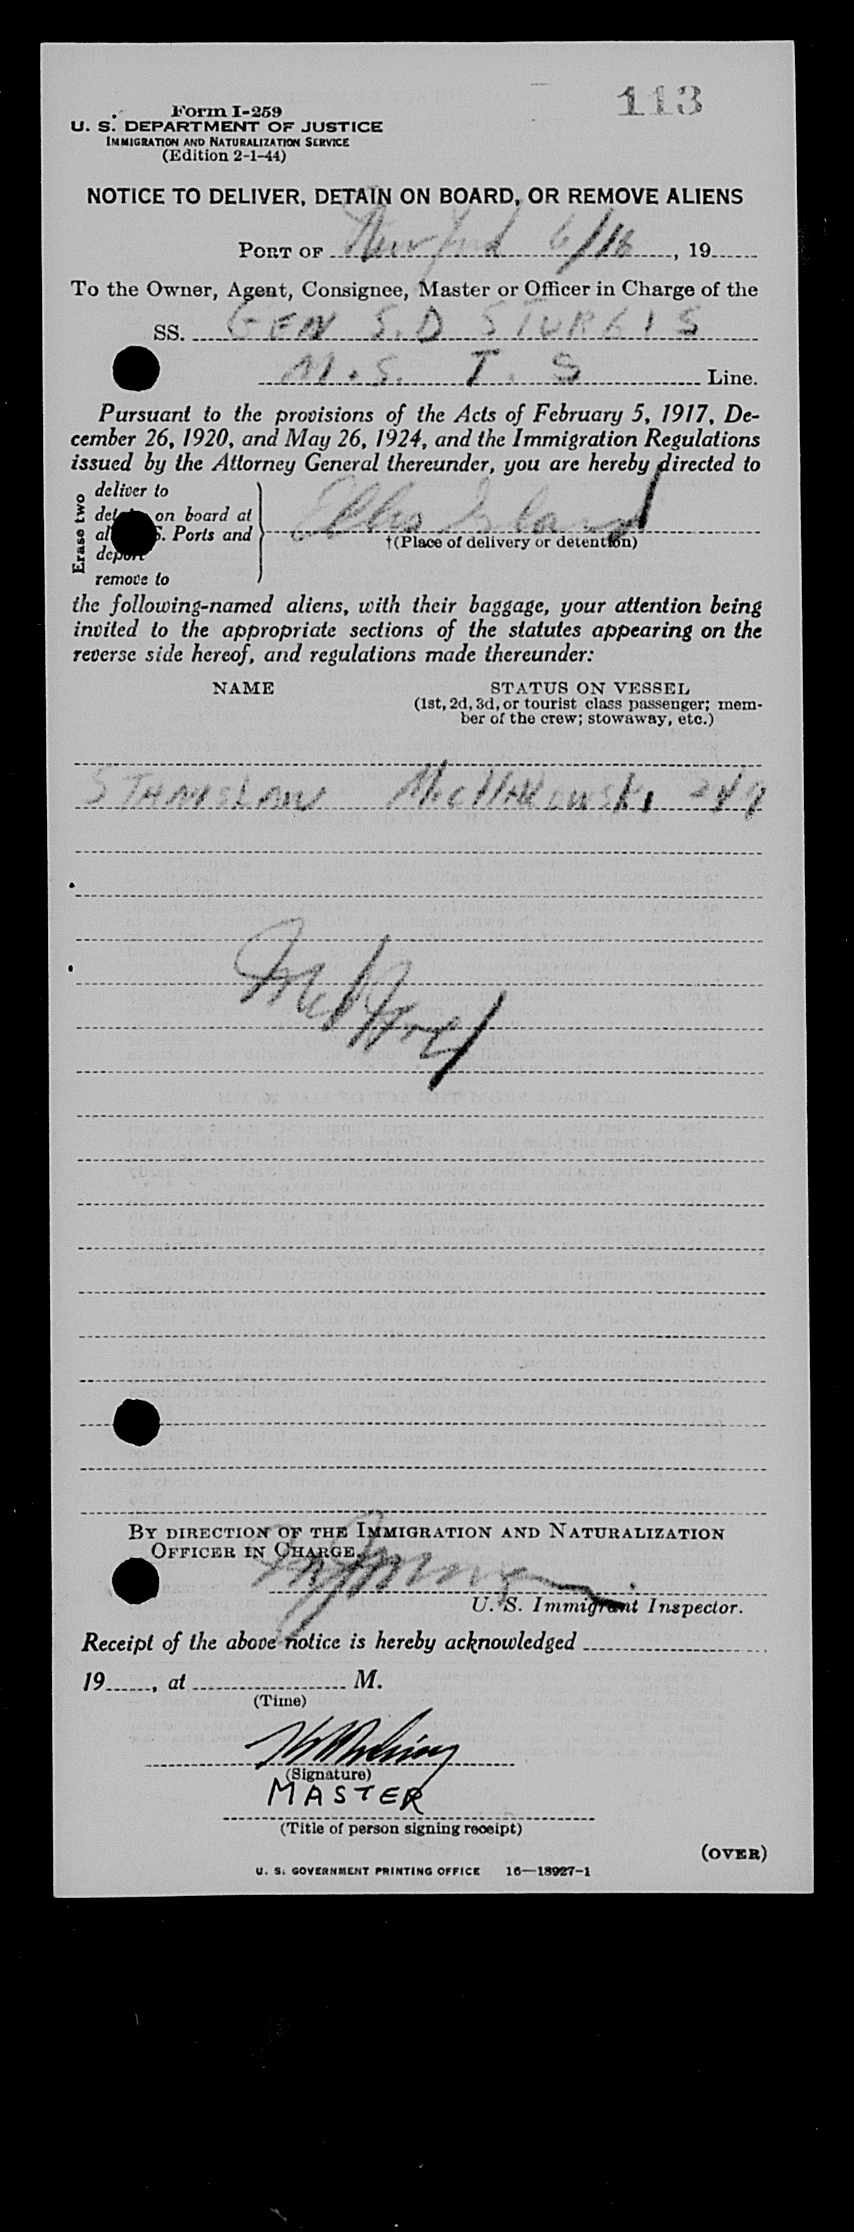 113
Form I-259
U. S. DEPARTMENT OF JUSTICE
IMMIGRATION AND NATURALIZATION SERVICE
(Edition 2-1-44)
NOTICE TO DELIVER, DETAIN ON BOARD, OR REMOVE ALIENS
PORT OF New York 6/18, 19
To the Owner, Agent, Consignee, Master or Officer in Charge of the
SS. GEN S.D STURGIS
M.S. T.S Line.
Pursuant to the provisions of the Acts of February 5, 1917, De-
cember 26, 1920, and May 26, 1924, and the Immigration Regulations
issued by the Attorney General thereunder, you are hereby directed to
Erase two
deliver to
on board at
Ports and
remove to
Ellis Island
†(Place of delivery or detention)
the following-named aliens, with their baggage, your attention being
invited to the appropriate sections of the statutes appearing on the
reverse side hereof, and regulations made thereunder:
NAME STATUS ON VESSEL
(1st, 2d, 3d, or tourist class passenger; mem-
ber of the crew; stowaway, etc.)
STANISLAW
BY DIRECTION OF THE IMMIGRATION AND NATURALIZATION
OFFICER IN CHARGE.
U. S. Immigrant Inspector.
Receipt of the above notice is hereby acknowledged
19, at M.
(Time)
(Signature)
MASTER
(Title of person signing receipt)
(OVER)
U. S. GOVERNMENT PRINTING OFFICE 16—18927-1